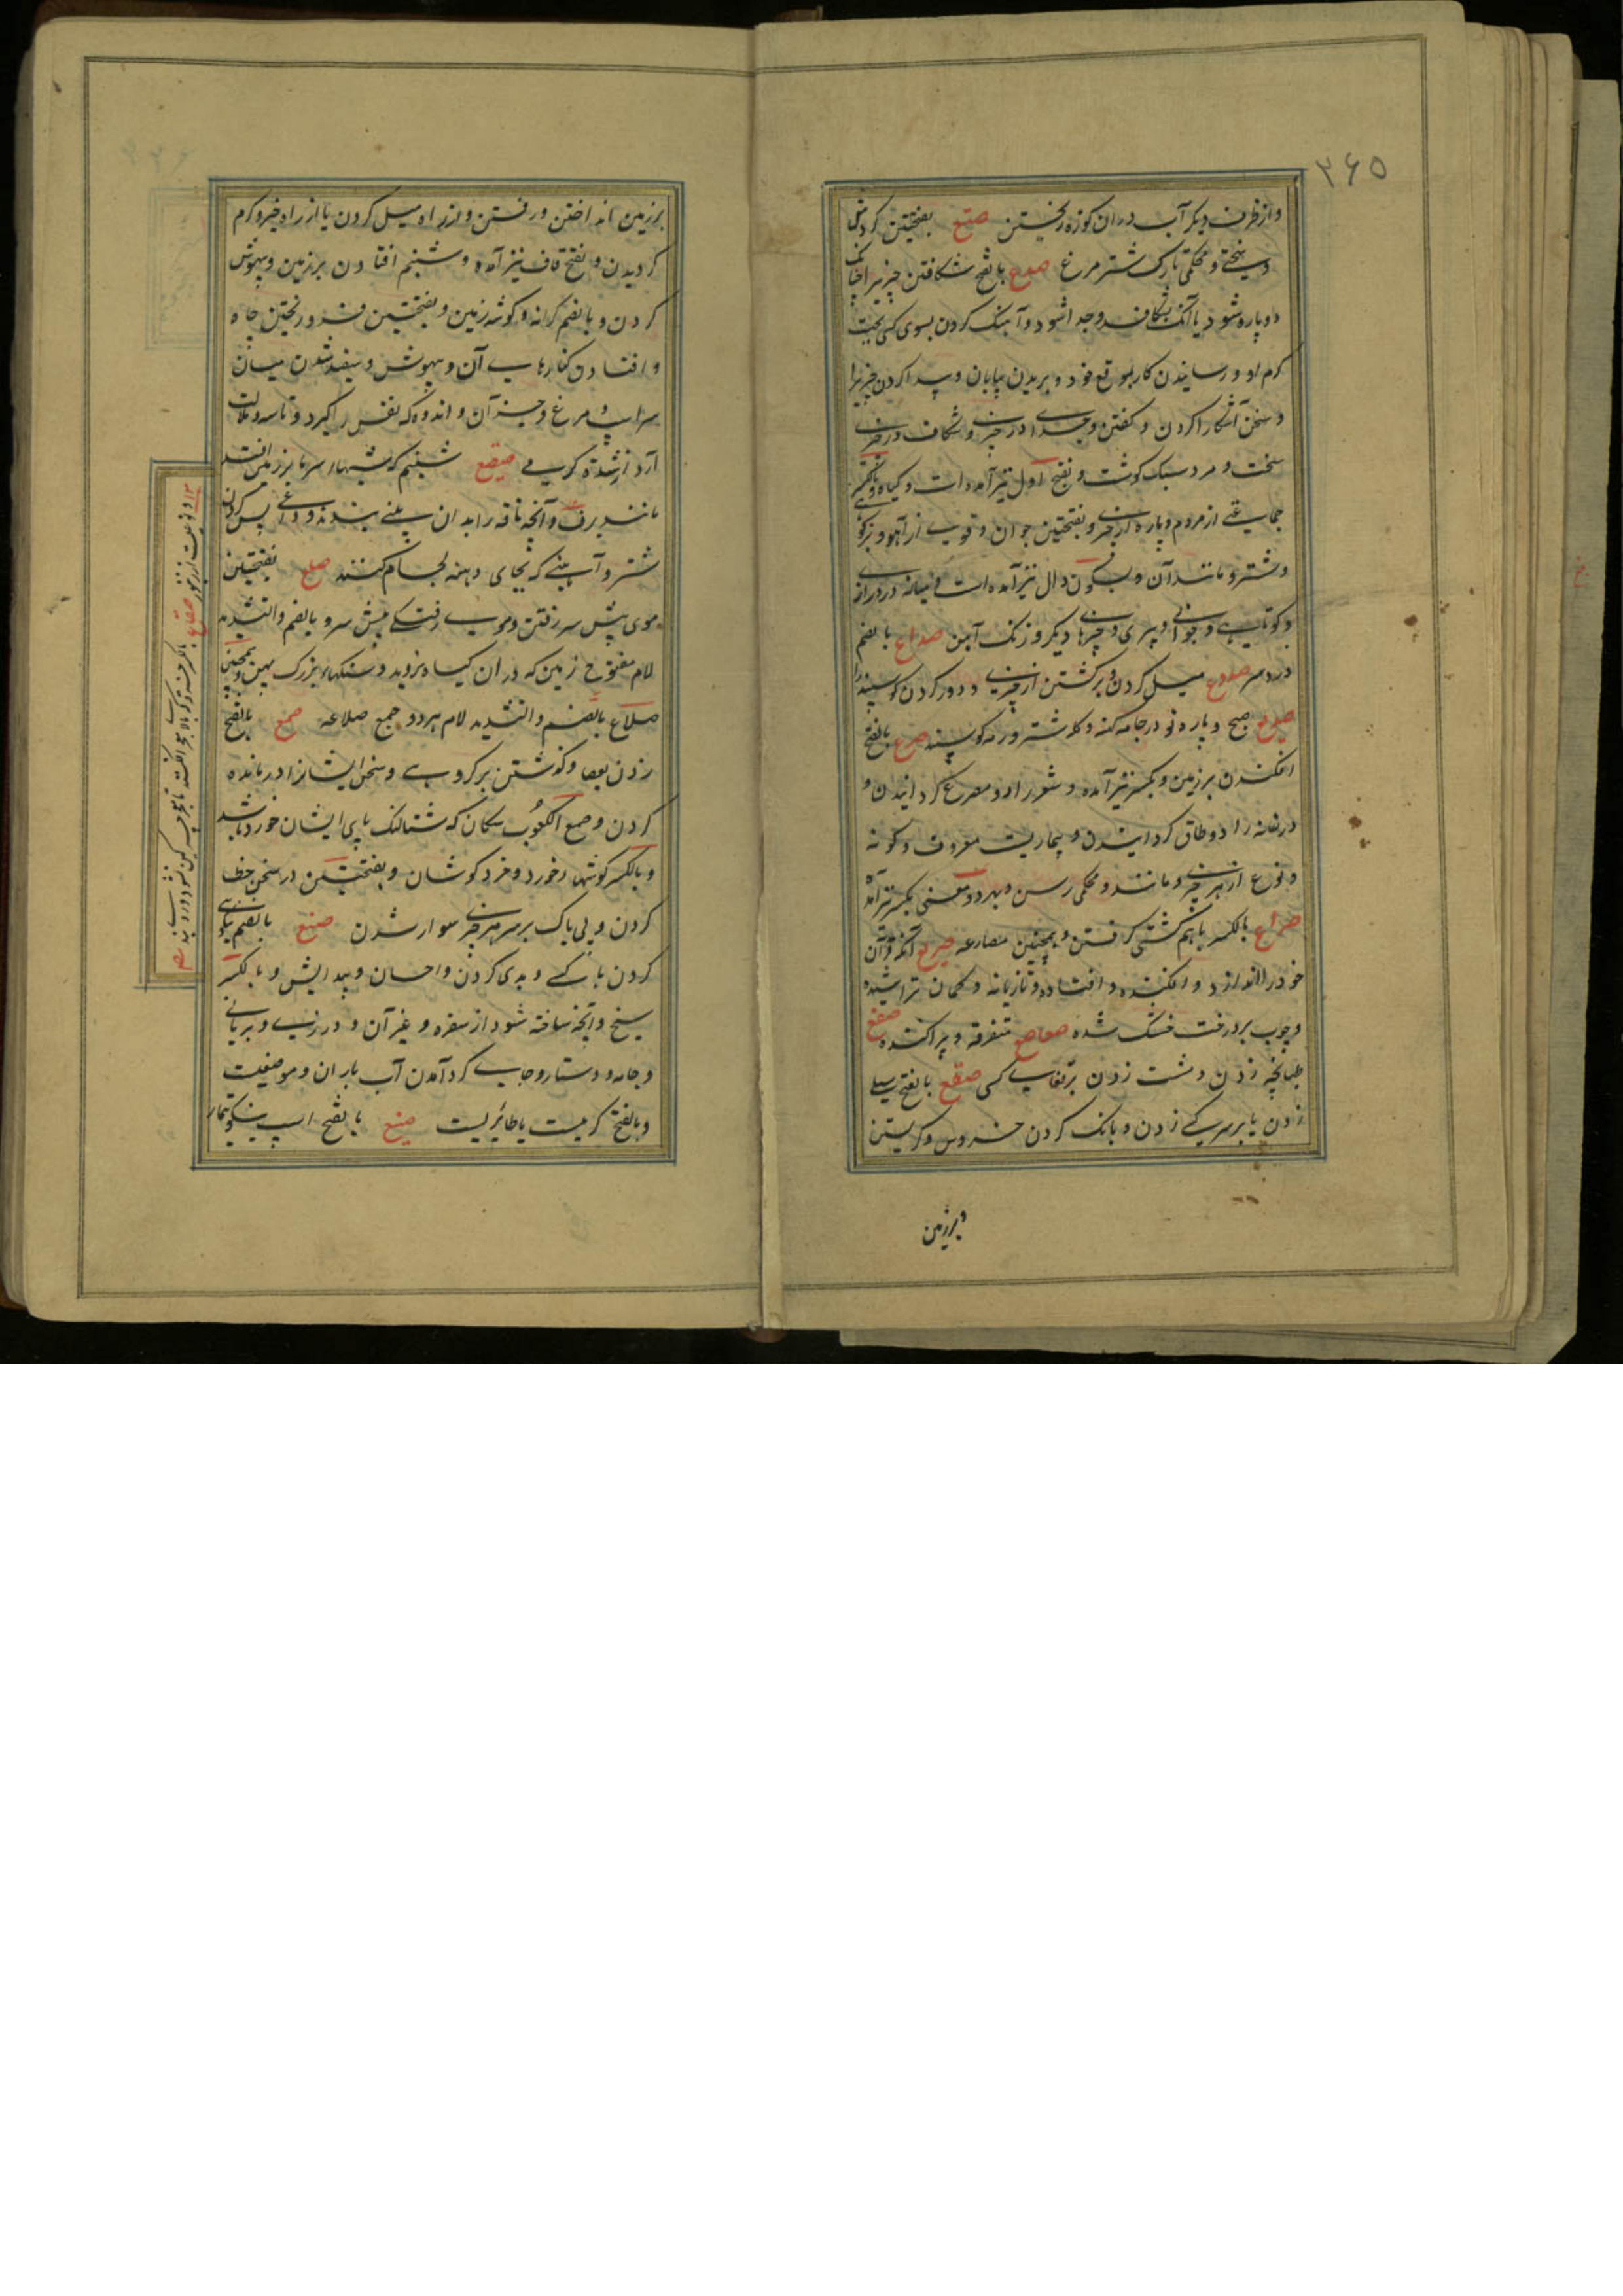 ۳۶۵
و از ظرف دیگر آب در ان کوزه ریختن صتع بفتحتین گردش
و سختی و محکمی تارک شتر مرغ صدع بالفتح شکافتن چیزیرا چنانکه
دو پاره شود یا آنکه بشکافد و جدا شود و آهنک کردن بسوی کسی بجهت
کرم او و رسانیدن کار بموقع خود و بریدن بیابان و پیدا کردن چیزیرا
و سخن آشکارا کردن و کفتن و جدا در چیزی و شکاف در چیزی
سخت و مرد سبک کوشت و بفتح اول نیز آمده است و کیاه و بالکسر
جماعتی از مردم و پاره از چیزی و بفتحتین جوان و قوی از آهو و بزکوهی
و شتر و مانند آن و بسکون دال نیز آمده است میانه در درازی
و کوتاهی و جوانی و پیری و چیزها دیکر و زنک آهن صداع بالضم
درد سر صدوع میل کردن و برکشتن از چیزی و دور کردن کوسپند را
صدیع صبح و پاره نو در جامه کهنه و کله شتر و رمه کوسپند صرع بالفتح
افکندن بر زمین و بکسر نیز آمده و شعر را دو مصرع کردانیدن و
در خانه را دو طاق کردانیدن و بیماریست معروف و کونه
و نوع از هر چیزی و مانند و محکمی رسن و بهر دو معنی بکسر نیز آمده
صراع بالکسر با هم کشتی کرفتن و همچنین مصارعه صریع آنکه
خود را اندازد و افکنده و افتاده و تازیانه و کمان تراشیده
و چوب بر درخت خشک شده صعاصع متفرقه و پراکنده صفع
طپانچه زدن و مشت زدن بر قفای کسی صقع بالفتح سیلی
زدن یا بر سر کسی زدن و بانک کردن خروس و کریستن
و بر زمین
بر زمین انداختن و رفتن و از راه میل کردن یا از راه خیر و کرم
کردیدن و بفتح قاف نیز آمده و شبنم افتادن بر زمین و بیهوش
کردن و بالضم کرانه و کوشه زمین و بفتحتین فرو ریختن چاه
و افتادن کنارهای آن و بیهوش و سفید شدن میان
سرایی و مرغ و جز آن و اندوه که نفس را کیرد و تاسه و ملالت
آرد از شدت کرمی صقیع شبنم که شبهاء سرما بر زمین افتد
مانند برف و آنچه ناقه را بدان بینی بندند و داغی پس کردن
شتر و آهنی که بجای دهنه لجام کنند صلع بفتحتین
موی پیش سر رفتن و موی رفتکی پیش سر و بالضم و التشدید
لام مفتوح زمین که در ان کیاه نروید و سنکهاء بزرک پهن و همچنین
صلاع بالضم و التشدید لام هر دو جمع صلاعه صمع بالفتح
زدن بعصا و کذشتن بر کروهی و سخن ایشانرا در مانده
کردن و صمع الکعوب سکان که شتالنک پای ایشان خورد باشد
و بالکسر کوشها خورد و خرد کوشان و بفتحتین در سخن خطا
کردن و بی باک بر سر هر چیزی سوار شدن صنع بالضم نیکوی
کردن با کسی و بدی کردن و احسان و پیدایش و بالکسر
سیخ و آنچه ساخته شود از سفره و غیر آن و درزی و بریانی
و جامه و دستار و جای کرد آمدن آب باران و موضعیست
و بالفتح کرمیست یا طائریست صنع بالفتح اسپ نیکو تیمار
صقاع بالکسر